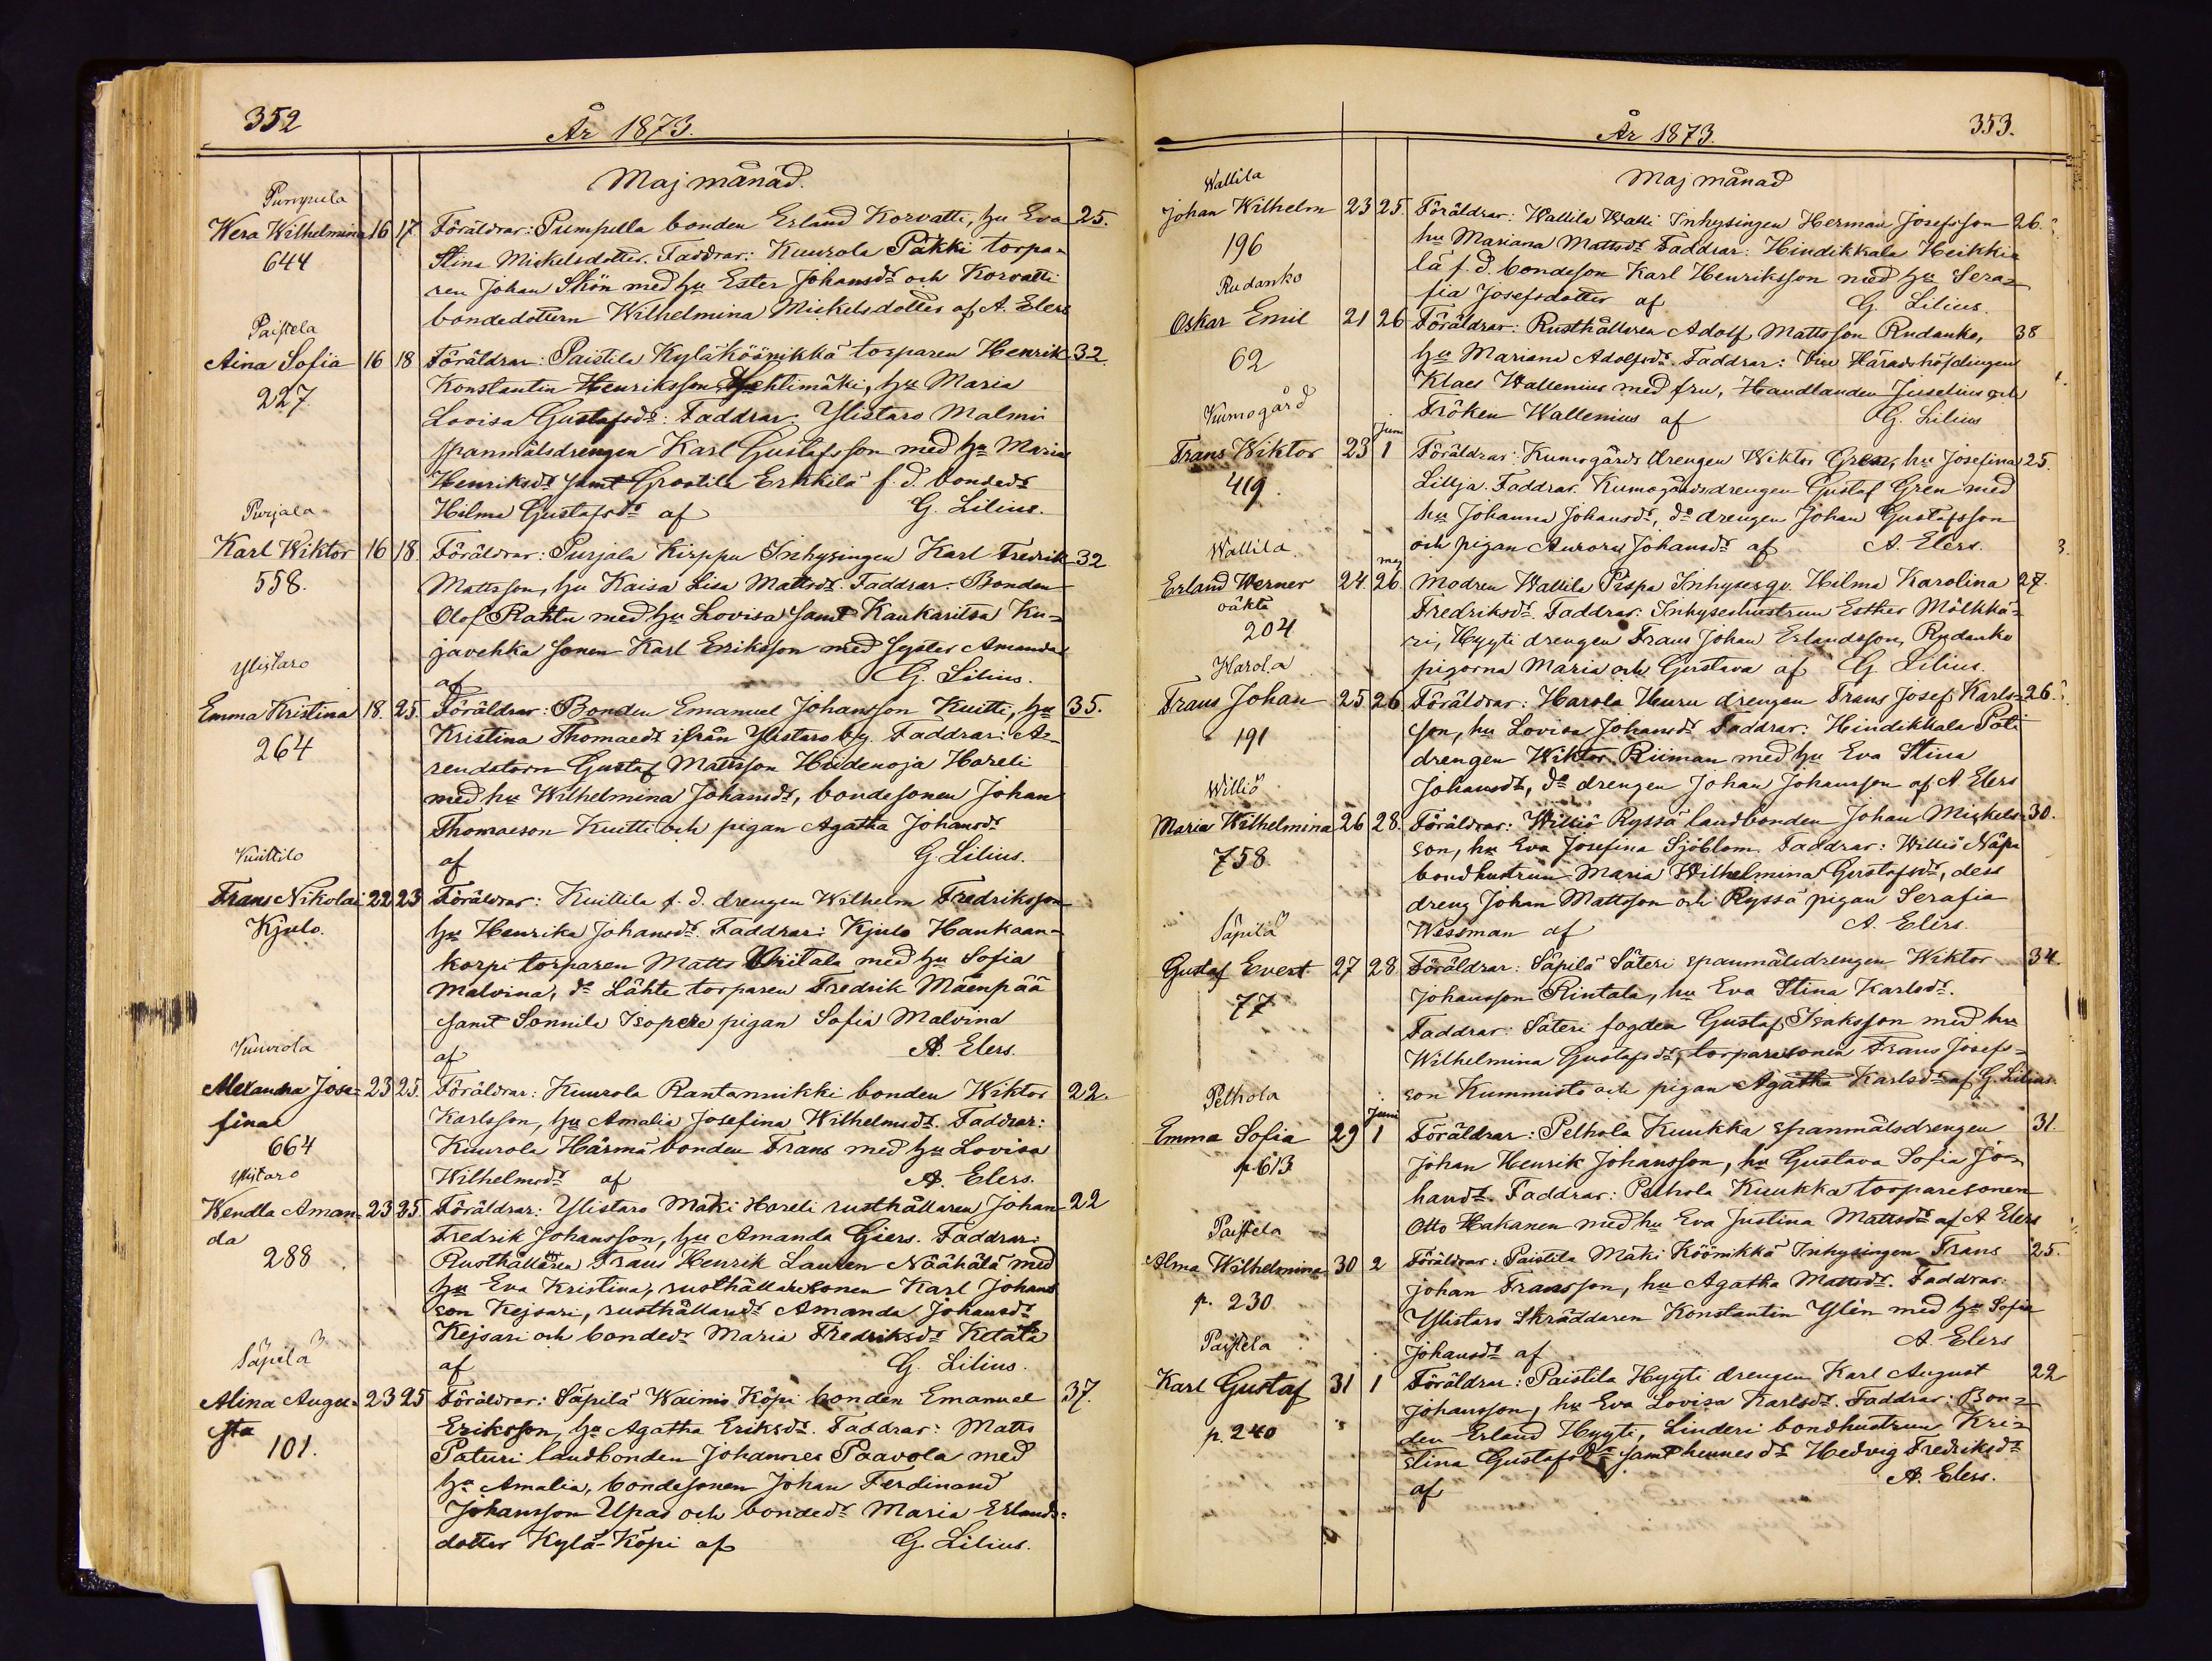 352
År 1873.
Maj månad.
Pumpula
Wera Wilhelmina 16 17 Föräldrar: Pumpulla bonden Erland Korvatti, hu Eva 25.
644 Stina Mickelsdotter. Faddrar: Kuurola Pakki torpa-
ren Johan Skön med hu Ester Johansdr och Korvatti
bondedottern Wilhelmina Mickelsdotter af A. Elers
Paistela
Aina Sofia 16 18 Föräldrar: Paistila Kyläköönikkä torparen Henrik 32.
227 Konstantin Henriksson Lehtimäki, hu Maria
Lovisa Gustafsdr: Faddrar: Ylistaro Malmi
spanmålsdrengen Karl Gustafsson med hu Maria
Henriksdr samt Grootila Erkkilä f. d. bondedr
Hilma Gustafsdr af G. Lilius.
Purjala
Karl Wiktor 16 18. Föräldrar: Purjala Kirppu Inhysingen Karl Fredrik 32
558. Mattsson, hu Kaisa Lisa Mattsdr. Faddrar: Bonden
Olof Rahtu med hu Lovisa samt Kaukaritsa Ku-
javehka sonen Karl Eriksson med syster Amanda
af G. Lilius.
Ylistaro
Emma Kristina 18. 25. Föräldrar: Bonden Emanuel Johansson Kuitti, hu 35.
264 Kristina Thomaedr ifrån Ylistaro by. Faddrar: Ar-
rendatorn Gustaf Mattsson Hiidenoja Hareli
med hu Wilhelmina Johansdr, bondesonen Johan
Thomaeson Kuitti och pigan Agatha Johansdr
af G. Lilius.
Kuittilo
Frans Nikolai 22 23 Föräldrar: Kuittila f. d. drengen Wilhelm Fredriksson
Kjulo. hu Henrika Johansdr. Faddrar: Kjulo Hankaan-
korpi torparen Matts Wiitala med hu Sofia
Malvina, do Lähte torparen Fredrik Mäenpää
samt Sonnila Isopere pigan Sofia Malvina
af A. Elers.
Kuurola
Alexandra Jose- 23 25. Föräldrar: Kuurola Rantannikki bonden Wiktor 22.
fina Karlsson, hu Amalia Josefina Wilhelmsdr. Faddrar:
664 Kuurola Härmä bonden Frans med hu Lovisa
Wilhelmsdr af A. Elers.
Ylistaro
Wendla Aman- 23 25. Föräldrar: Ylistaro Mäki Hareli rusthållaren Johan 22
da Fredrik Johansson, hu Amanda Giers. Faddrar:
288 Rusthållaren Frans Henrik Lauren Näähälä med
hu Eva Kristina, rusthållaresonen Karl Johans
son Kejsari, rusthållaredr Amanda Johansdr
Kejsari och bondedr Maria Fredriksdr Ketala
af G. Lilius.
Säpilä
Alina Augu- 23 25 Föräldrar: Säpilä Wainio Köpi bonden Emanuel 37.
sta Eriksson, hu Agatha Eriksdr. Faddrar: Matts
101. Paturi landbonden Johannes Paavola med
hu Amalia, bondesonen Johan Ferdinand
Johansson Upas och bondedr Maria Erlands-
dotter Kylä-Köpi af G. Lilius.
353.
År 1873.
Maj månad
Wallila
Johan Wilhelm 23 25. Föräldrar: Wallila Walli Inhysingen Herman Josefsson 26.
196 hu Mariana Mattsdr. Faddrar: Hindikkala Heikki-
lä f. d. bondeson Karl Henriksson med hu Sera-
fia Josefsdotter af G. Lilius.
Rudanko
Oskar Emil 21 26 Föräldrar: Rusthållaren Adolf Mattsson Rudanko, 38
62 hu Mariana Adolfsdr. Faddrar: Vice Häradshöfdingen
Klaes Wallenius med fru, Handlanden Juselius och
Fröken Wallenius af G. Lilius
Kumogård
Juni
Frans Wiktor 23 1 Föräldrar: Kumogårds drengen Wiktor Gren, hu Josefina 25.
419. Lillja. Faddrar. Kumogårdsdrengen Gustaf Gren med
hu Johanna Johansdr, do drengen Johan Gustafsson
och pigan Aurora Johansdr af A. Elers.
Wallila
maj
Erland Werner 24. 26. Modren Wallila Pispa Inhysesqv. Hilma Karolina 27.
oäkta Fredriksdr. Faddrar: Inhyseshustrun Esther Mölkkä-
204 ri, Hyyti drengen Frans Johan Erlandsson, Rudanko
pigorna Maria och Gustava af G. Lilius.
Harola
Frans Johan 25 26 Föräldrar: Harola Huuru drengen Frans Josef Karls- 26.
191 son, hu Lovisa Johansdr Faddrar: Hindikkala Poti
drengen Wiktor Riiman med hu Eva Stina
Johansdr, do drengen Johan Johansson af A Elers
Williö
Maria Wilhelmina 26 28. Föräldrar: Williö Ryssä landbonden Johan Mickels- 30.
758. son, hu Eva Josefina Sjöblom. Faddrar: Williö Näpa
bondhustrun Maria Wilhelmina Gustafsdr, dess
dreng Johan Mattsson och Ryssä pigan Serafia
Wessman af A. Elers.
Säpilä
Gustaf Evert 27 28 Föräldrar: Säpilä Säteri spanmålsdrengen Wiktor 34.
77 Johansson Rintala, hu Eva Stina Karlsdr.
Faddrar: Säteri fogden Gustaf Isaksson med hu
Wilhelmina Gustafsdr, torparesonen Frans Josefs-
son Kummisto och pigan Agatha Karlsdr af G. Lilius.
Pelhola
Juni
Emma Sofia 29 1 Föräldrar: Pelhola Kuukka spanmålsdrengen 31
p 613 Johan Henrik Johansson, hu Gustava Sofia Jo-
hansdr. Faddrar: Pelhola Kuukka torparesonen
Otto Hakanen med hu Eva Justina Mattsdr af A Elers
Paistela
Alma Wilhelmina 30 2 Föräldrar: Paistila Mäki Köönikkä Inhysingen Frans 25.
p. 230 Johan Fransson, hu Agatha Mattsdr. Faddrar:
Ylistaro Skräddaren Konstantin Ylén med hu Sofia
Johansdr af A. Elers
Paistela
Karl Gustaf 31 1 Föräldrar: Paistila Hyyti drengen Karl August 22
p. 240 Johansson, hu Eva Lovisa Karlsdr. Faddrar: Bon-
den Erland Hyyti, Linderi bondhustrun Kri-
stina Gustafsdr samt hennes dr Hedvig Fredriksdr
af A. Elers.